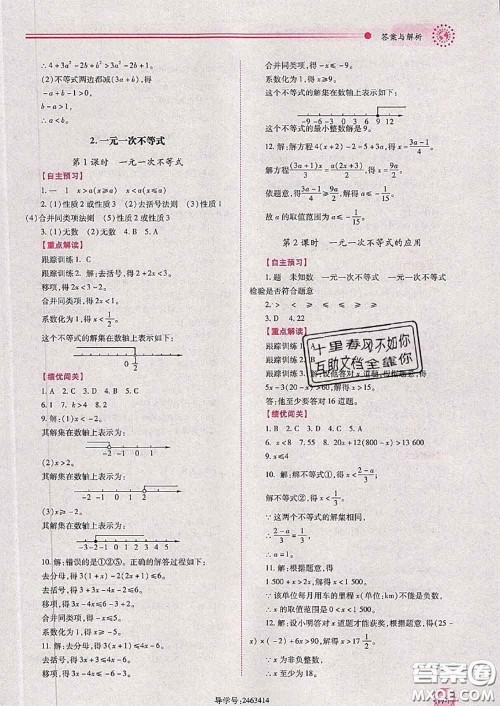 答案与解析
∴ 4+3a²-2b+b²>3a²-2b+1.
(2)不等式两边都减(3a+b),得
-a+b-1>0.
b-a>1.
∴ a<b.
2.一元一次不等式
第1课时 一元一次不等式
【自主预习】
1.一 1 x>a(x≥a) x<a(x≤a)
2.(1)性质2或性质3 (2)去括号法则 (3)性质1
(4)合并同类项法则 (5)性质2或性质3
3.(1)无数 (2)无数 4.B 5.A
【重点解读】
跟踪训练1.C
跟踪训练2.解:去括号,得2+2x<3.
移项,得2x<3-2.
合并同类项,得2x<1.
系数化为1,得x<1/2.
这个不等式的解集在数轴上表示为:
-2 -1 0 1 2
【绩优闯关】
1.C 2.C 3.D 4.B 5.A
6.1 7.x>4 8.k>2
9.(1)x<-2.
其解集在数轴上表示为:
-2 -1 0 1 2
(2)x≥-2.
其解集在数轴上表示为:
-3 -2 -1 0 1 2 3
10.解:错误的是①②⑤,正确的解答过程如下:
去分母,得3(1+x)-2(2x+1)≤6.
去括号,得3+3x-4x-2≤6.
移项,得3x-4x≤6-3+2.
合并同类项,得-x≤5.
系数化为1,得x≥-5.
11.解:去分母,得3(x-2)-2(2x-1)≤
去括号,得3x-6-4x+2≤
移项,得3x-4x≤
合并同类项,得-x≤-9.
系数化为1,得x≥9.
这个不等式的解集在数轴上表示为:
这个不等式的最小整数解为9.
12.解:解方程4(x+2)-2=5+3a,得x=(3a-1)/4.
解方程(3a+1)x/3=a(2x+3)/2,得x=9a/2.
依题意,得(3a-1)/4≥9a/2,解得a≤-1/15.
故a的取值范围为a≤-1/15.
第2课时 一元一次不等式的应用
【自主预习】
1.题 未知数 一元一次不等式 一元一次不等式
检验是否符合题意
【重点解读】
跟踪训练1.
跟踪训练2.B
十里春风不如你
互助文档全靠你
5x-3(20-x)>60,解得x>15.
答:他至少要答对16道题。
【绩优闯关】
6.x<8 7.55 8.20x+12(800-x)>13 600
9.x≤4
10.解:解不等式①,得x<(2-a)/3.
解不等式②,得x<1/3.
∵这两个不等式的解集相同,
∴(2-a)/3=1/3.
解得a=1.
11.解:根据题意,得
1 500+2x>4x.
解得x<1 500.
∵该单位每月用车的里程x(单位:km)不能是负数,
∴x的取值范围是0<x<1 500.
12.解:设小明答对x道题才能获奖,根据题意,得(25
-x)×(-2)+6x>90,解得x>17 1/2.
∵x为非负整数,
导学号:2463414
答案圈
MXQE.COM